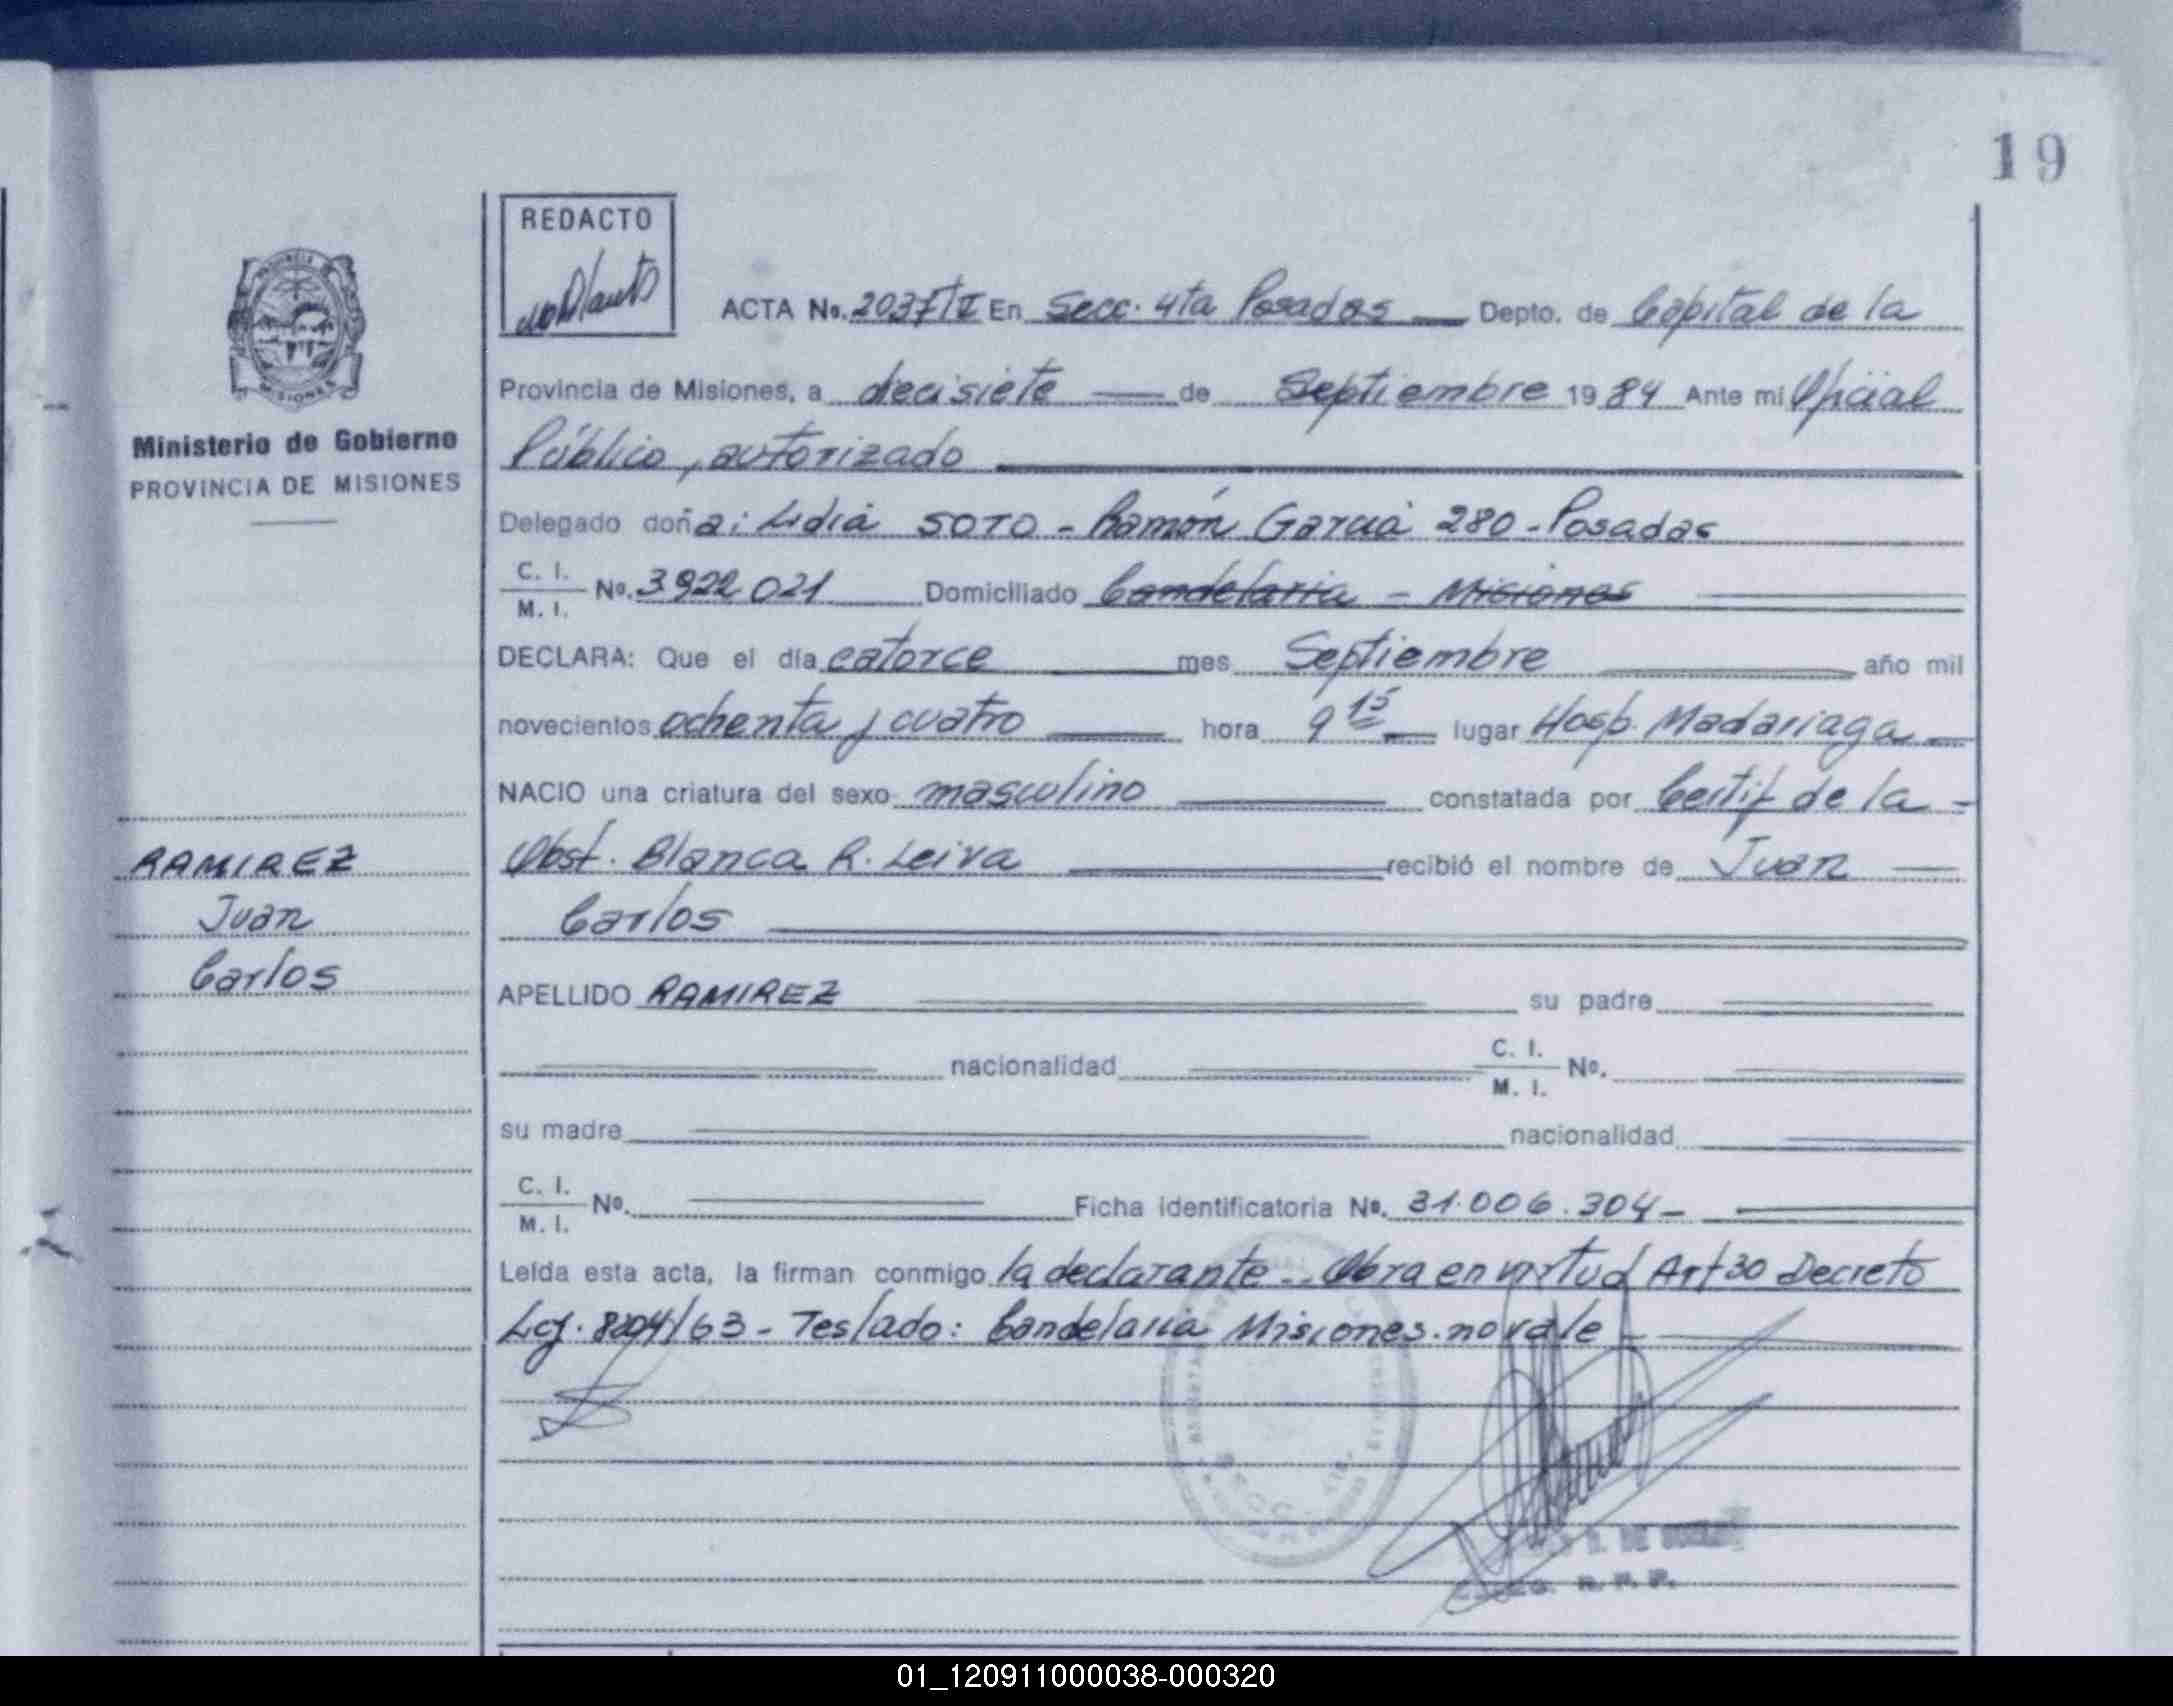 19
REDACTO
ACTA No. 2037/II En Secc. 4ta Posadas Depto. de Capital de la
Provincia de Misiones, a diecisiete de Septiembre 1984 Ante mi Oficial
Ministerio de Gobierno
PROVINCIA DE MISIONES
Público, autorizado
Delegado doña: Lidia SOTO - Ramón García 280 - Posadas
C. I.
M. I.
No. 3922021 Domiciliado Candelaria - Misiones
DECLARA: Que el día catorce mes Septiembre año mil
novecientos ochenta y cuatro hora 9 15 lugar Hosp. Madariaga
NACIO una criatura del sexo masculino constatada por Certif de la -
RAMIREZ
Juan
Carlos
Obst. Blanca R. Leiva recibió el nombre de Juan
Carlos
APELLIDO RAMIREZ su padre
nacionalidad C. I.
M. I. No.
su madre nacionalidad
C. I.
M. I. No. Ficha identificatoria No. 31.006.304-
Leída esta acta, la firman conmigo la declarante.. Obra en virtud Art 30 Decreto
Ley. 8204/63 - Testado: Candelaria Misiones. no vale
01_120911000038-000320